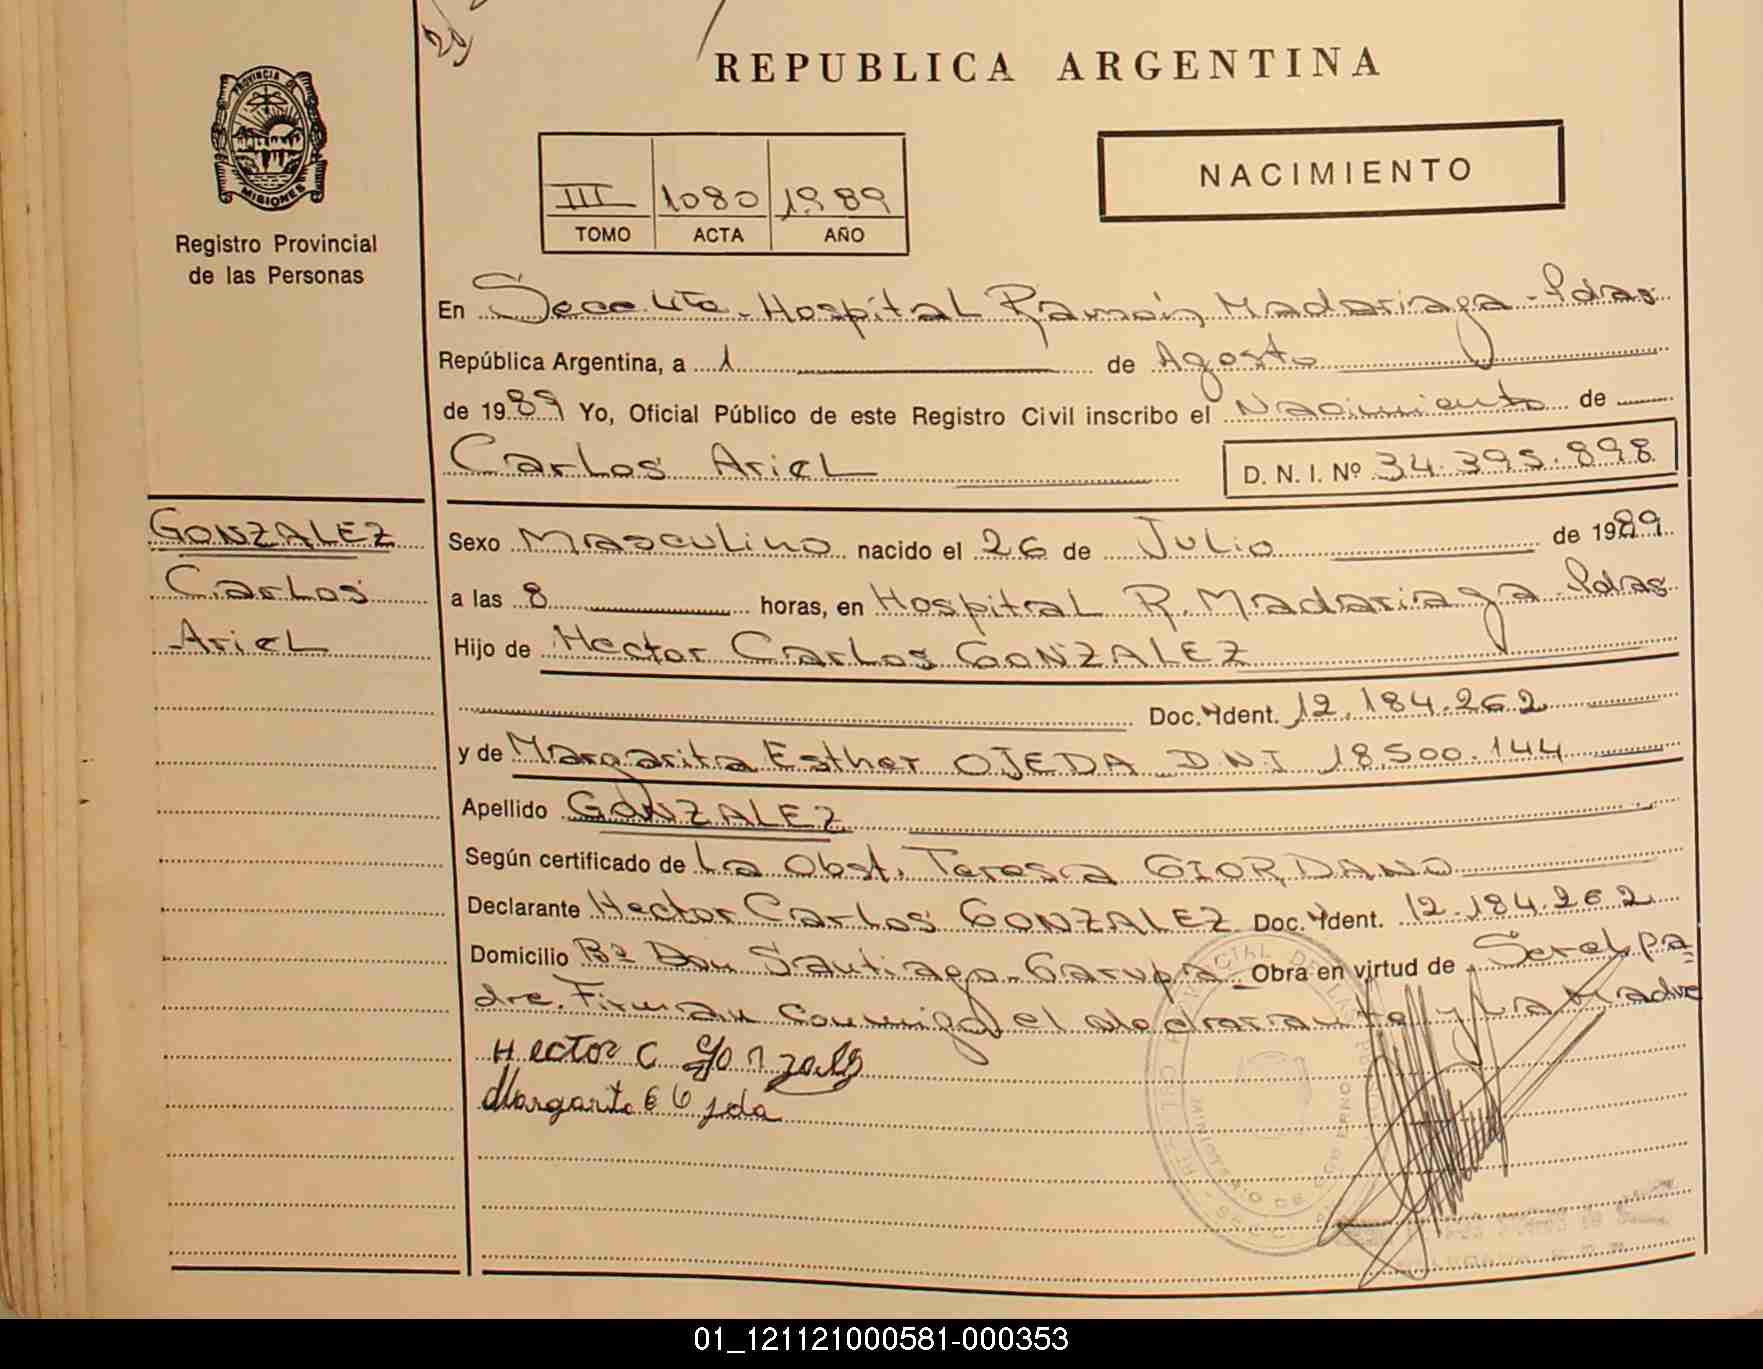 REPUBLICA ARGENTINA
PROVINCIA DE
MISIONES
Registro Provincial
de las Personas
III 1080 1989
TOMO ACTA AÑO
NACIMIENTO
En Secc. 4ta. Hospital Ramón Madariaga - Pdas
República Argentina, a 1 de Agosto
de 1989 Yo, Oficial Público de este Registro Civil inscribo el Nacimiento de
Carlos Ariel
D. N. I. Nº 34.395.898
GONZALEZ
Carlos
Ariel
Sexo Masculino nacido el 26 de Julio de 1989
a las 8 horas, en Hospital R. Madariaga - Pdas
Hijo de Hector Carlos GONZALEZ
Doc. Ident. 12.184.262
y de Margarita Esther OJEDA DNI 18.500.144
Apellido GONZALEZ
Según certificado de La Obst. Teresa GIORDANO
Declarante Hector Carlos GONZALEZ Doc. Ident. 12.184.262
Domicilio Bº Don Santiago - Garupa - Obra en virtud de Ser el pa=
dre. Firman conmigo el declarante y La Madre
Hector C Gonzalez
Margarita E Ojeda
01_121121000581-000353